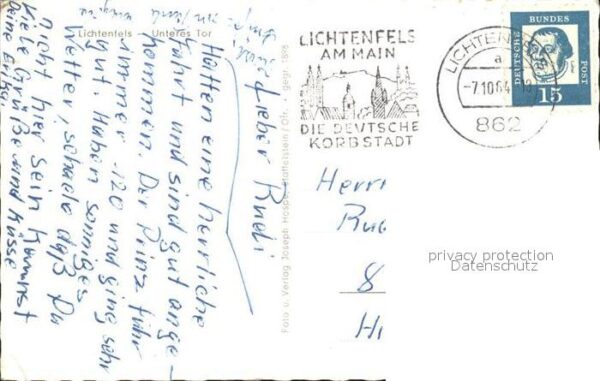 Lichtenfels — Unteres Tor
Lieber Rudi
Hatten eine herrliche
Fahrt und sind gut ange-
kommen. Der Prinz fuhr
immer 120 und ging sehr
gut Haben sonniges
Wetter, schade daß Du
nicht hier sein kannst
Viele Grüße und Küsse
Deine
Foto u. Verlag Joseph Hospe, Staffelstein/Ofr. · gegr. 1898
LICHTENFELS
AM MAIN
DIE DEUTSCHE
KORBSTADT
LICHTENF
a
-7.10.64
862
DEUTSCHE
BUNDES
POST
15
Herr
Ru
8
H
privacy protection
Datenschutz